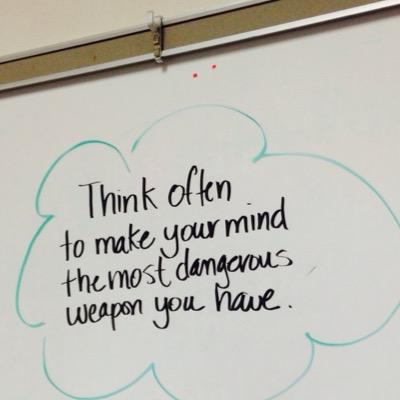 Think often
to make your mind
the most dangerous
weapon you have.